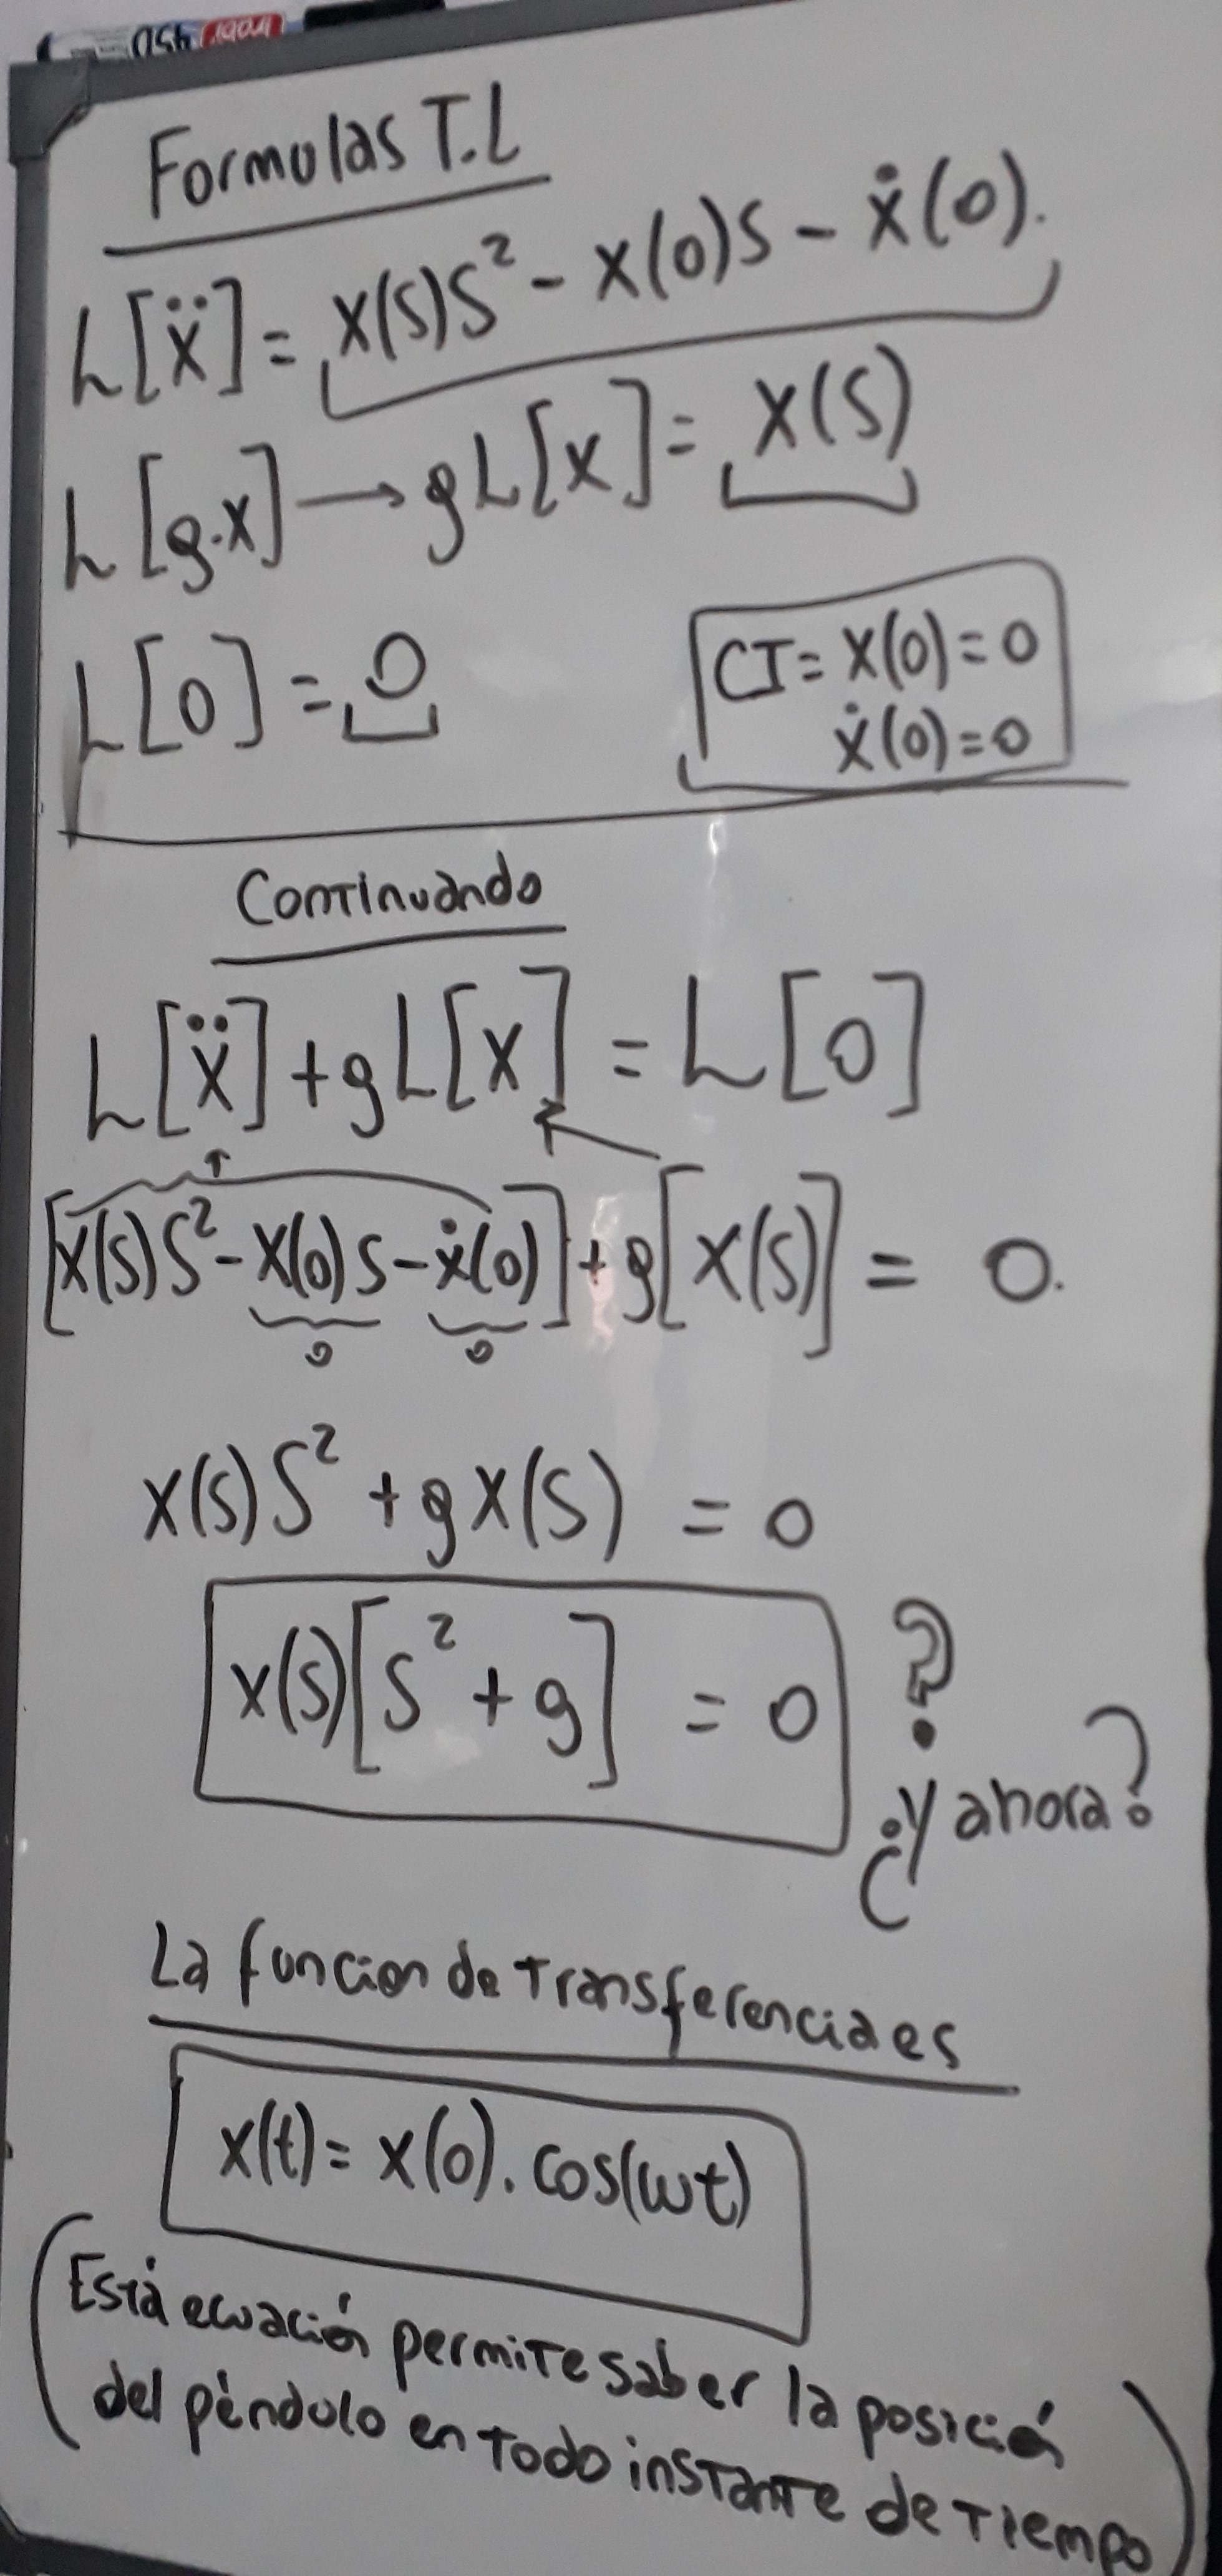 Formulas T.L
L[ẍ] = x(s)s² - x(0)s - ẋ(0).
L[g.x] → gL[x] = x(s)
L[0] = 0
CI = x(0) = 0
ẋ(0) = 0
Continuando
L[ẍ] + gL[x] = L[0]
[x(s)s² - x(0)s - ẋ(0)] + g[x(s)] = 0.
0 0
x(s)s² + gx(s) = 0
x(s)[s² + g] = 0 ?
¿y ahora?
La funcion de transferencia es
x(t) = x(0). cos(wt)
(Está ecuación permite saber la posición
del péndulo en todo instante de tiempo)